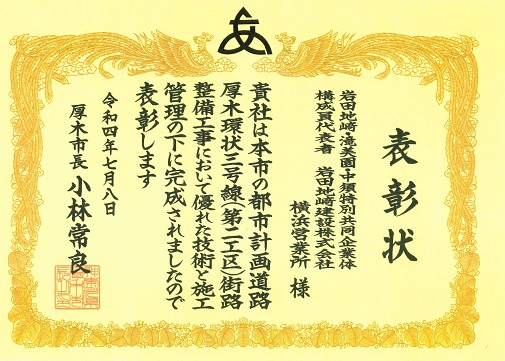 表彰状
岩田地崎・滝美園・中須特別共同企業体
構成員代表者 岩田地崎建設株式会社
横浜営業所 様
貴社は本市の都市計画道路
厚木環状三号線(第二工区)街路
整備工事において優れた技術と施工
管理の下に完成されましたので
表彰します
令和四年七月八日
厚木市長 小林常良